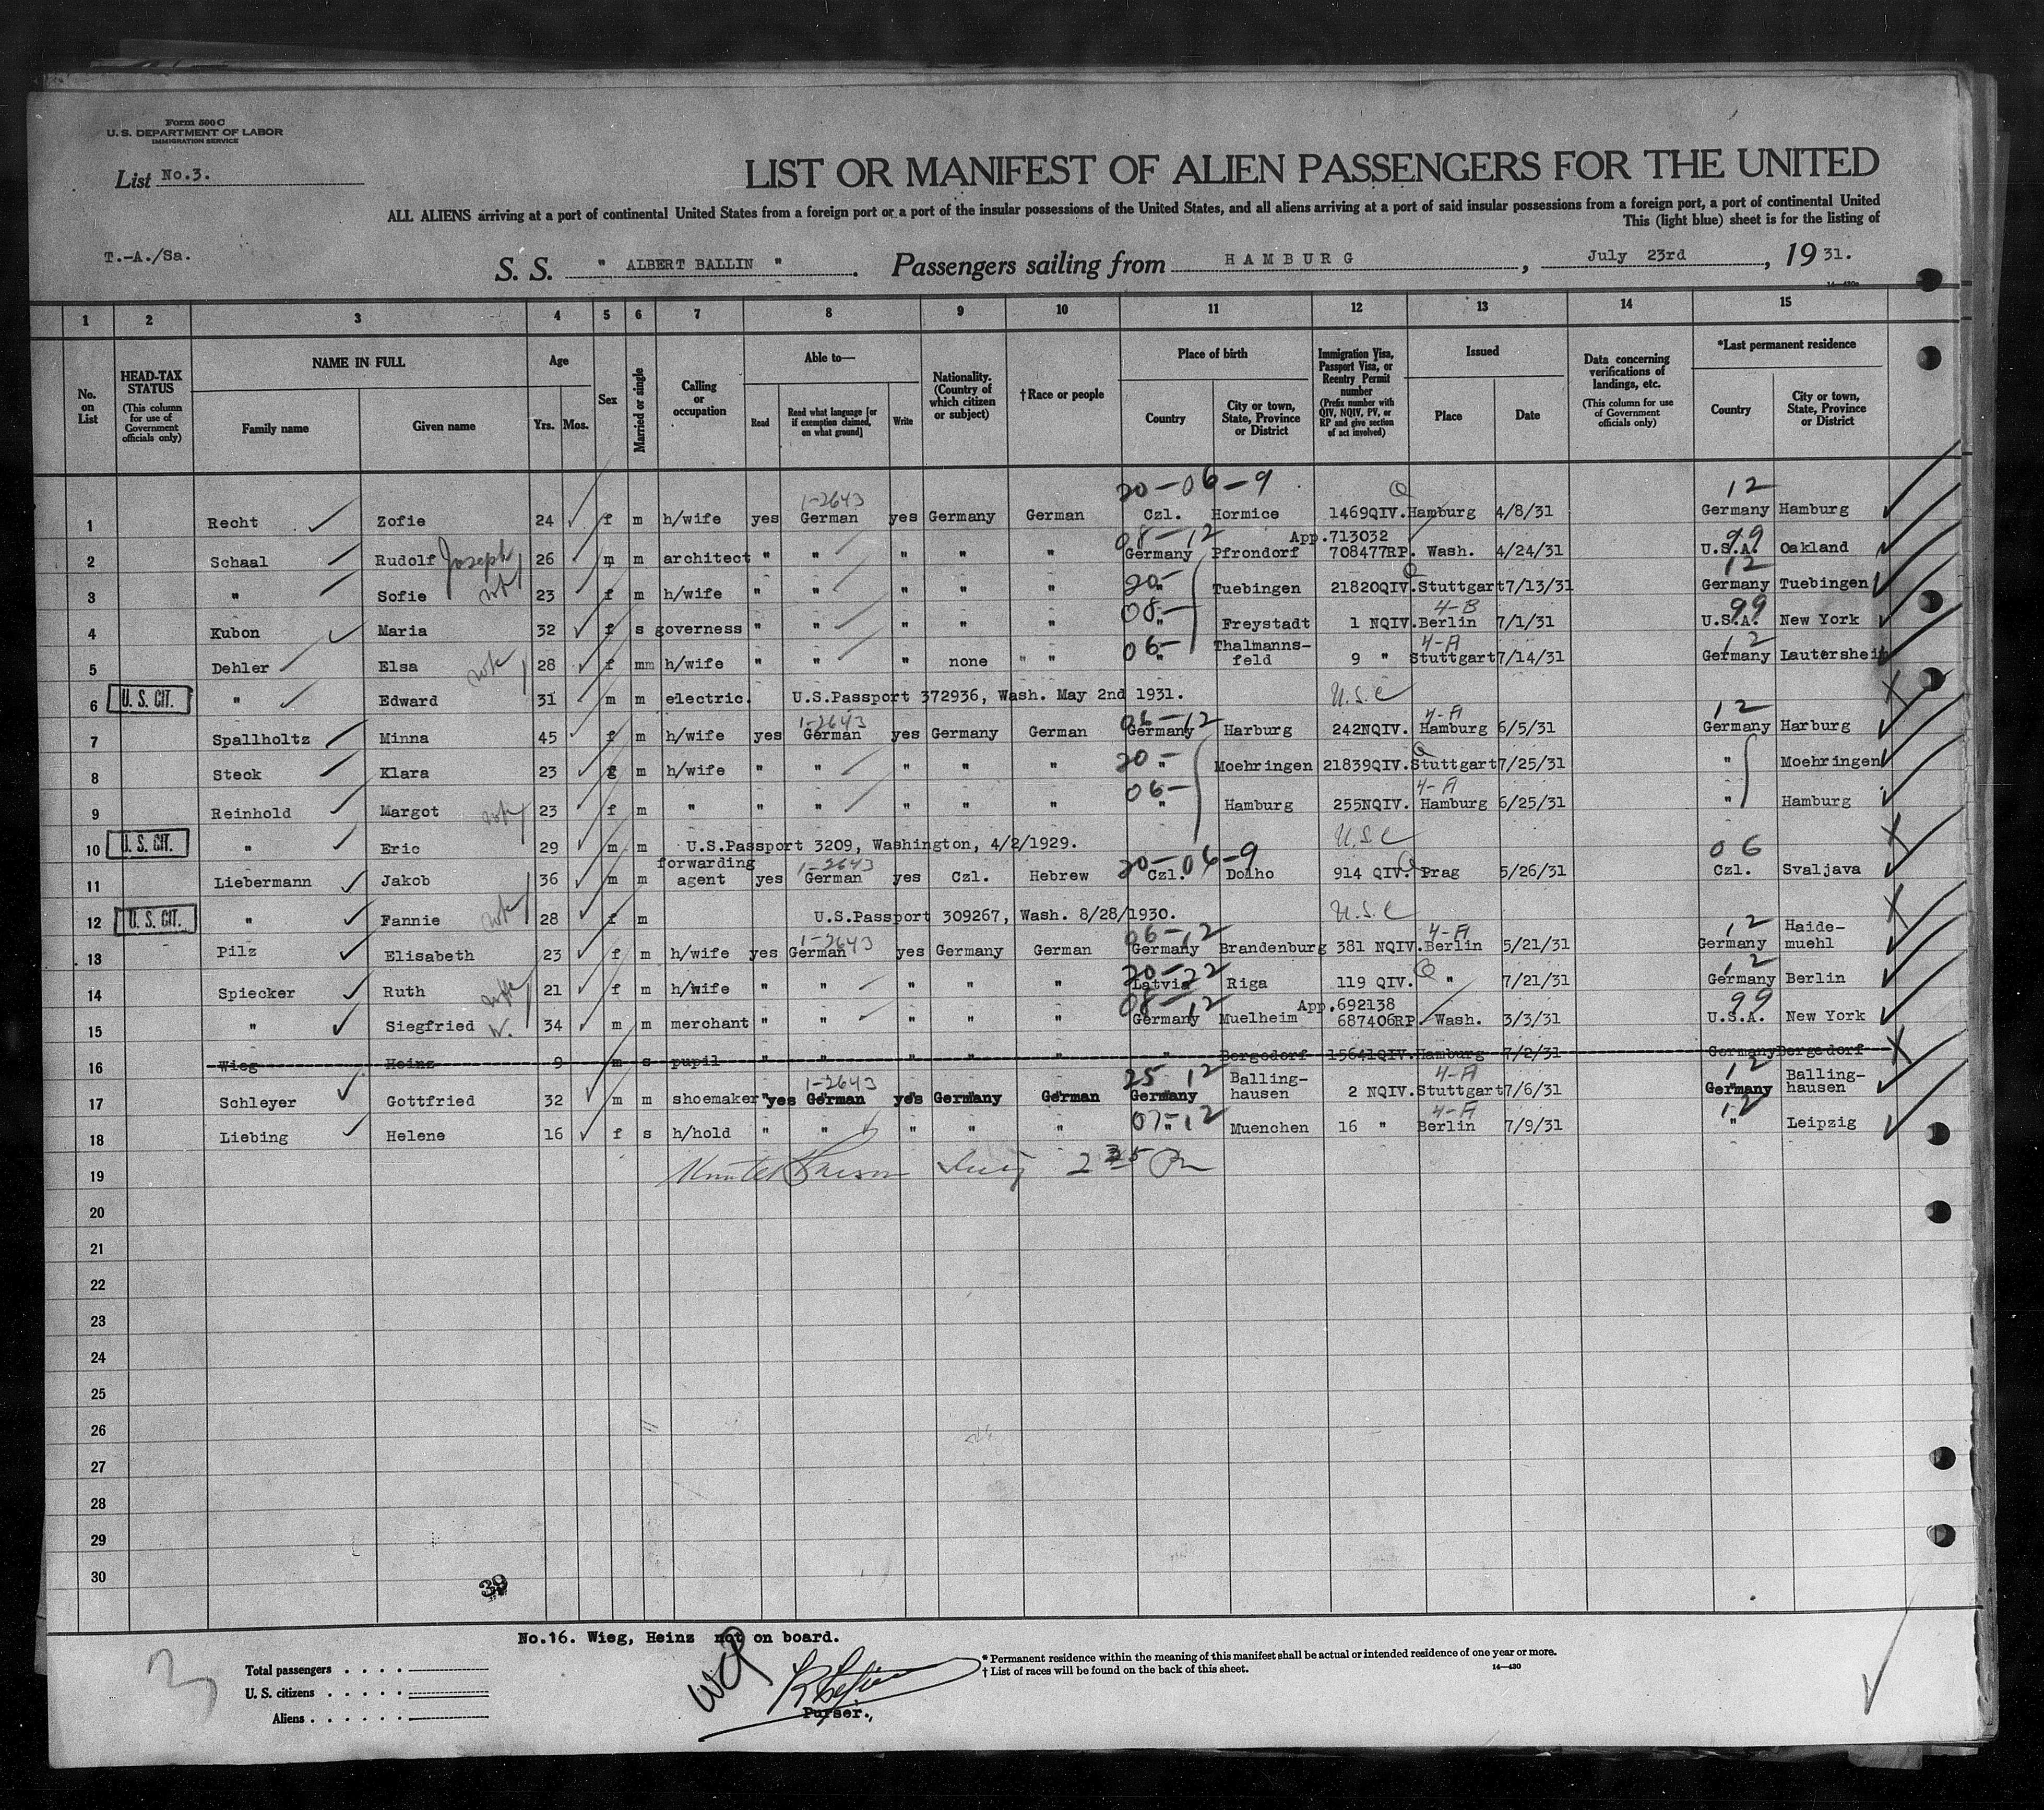 Form 500 C
U. S. DEPARTMENT OF LABOR
IMMIGRATION SERVICE
List No.3.
LIST OR MANIFEST OF ALIEN PASSENGERS FOR THE UNITED
ALL ALIENS arriving at a port of continental United States from a foreign port or a port of the insular possessions of the United States, and all aliens arriving at a port of said insular possessions from a foreign port, a port of continental United
This (light blue) sheet is for the listing of
T.-A./Sa.
S. S. " ALBERT BALLIN ". Passengers sailing from HAMBURG, July 23rd, 19 31.
14—430a
1 2 3 4 5 6 7 8 9 10 11 12 13 14 15
No. on List
HEAD-TAX STATUS (This column for use of Government officials only)
NAME IN FULL
Family name Given name
Age
Yrs. Mos.
Sex
Married or single
Calling or occupation
Able to—
Read Read what language [or if exemption claimed, on what ground] Write
Nationality. (Country of which citizen or subject)
† Race or people
Place of birth
Country City or town, State, Province or District
Immigration Visa, Passport Visa, or Reentry Permit number (Prefix number with QIV, NQIV, PV, or RP and give section of act involved)
Issued
Place Date
Data concerning verifications of landings, etc. (This column for use of Government officials only)
*Last permanent residence
Country City or town, State, Province or District
20-06-9 Q 12
1-2643
1 Recht Zofie 24 f m h/wife yes German yes Germany German Czl. Hormice 1469QIV. Hamburg 4/8/31 Germany Hamburg
08-12 App.713032 99
2 Schaal Rudolf Joseph 26 m m architect " " " " " Germany Pfrondorf 708477RP. Wash. 4/24/31 U.S.A. Oakland
20- Q 12
3 " Sofie 23 f m h/wife " " " " " " Tuebingen 21820QIV. Stuttgart 7/13/31 Germany Tuebingen
08- 4-B 99
4 Kubon Maria 32 f s governess " " " " " " Freystadt 1 NQIV. Berlin 7/1/31 U.S.A. New York
06- 4-A 12
5 Dehler Elsa 28 f mm h/wife " " " none " " " Thalmanns-feld 9 " Stuttgart 7/14/31 Germany Lautersheim
6 U. S. CIT. " Edward 31 m m electric. U.S.Passport 372936, Wash. May 2nd 1931. U.S.C
1-2643 06-12 4-A 12
7 Spallholtz Minna 45 f m h/wife yes German yes Germany German Germany Harburg 242NQIV. Hamburg 6/5/31 Germany Harburg
20- Q
8 Steck Klara 23 g m h/wife " " " " " " Moehringen 21839QIV. Stuttgart 7/25/31 " Moehringen
06- 4-A
9 Reinhold Margot 23 f m " " " " " " " Hamburg 255NQIV. Hamburg 6/25/31 " Hamburg
10 U. S. CIT. " Eric 29 m m U.S.Passport 3209, Washington, 4/2/1929. U.S.C
1-2643 20-06-9 Q 06
11 Liebermann Jakob 36 m m forwarding agent yes German yes Czl. Hebrew Czl. Dolho 914 QIV. Prag 5/26/31 Czl. Svaljava
12 U. S. CIT. " Fannie 28 f m U.S.Passport 309267, Wash. 8/28/1930. U.S.C
1-2643 06-12 4-A 12
13 Pilz Elisabeth 23 f m h/wife yes German yes Germany German Germany Brandenburg 381 NQIV. Berlin 5/21/31 Germany Haide-muehl
20-22 Q 12
14 Spiecker Ruth 21 f m h/wife " " " " " Latvia Riga 119 QIV. " 7/21/31 Germany Berlin
08-12 App.692138 99
15 " Siegfried W. 34 m m merchant " " " " " Germany Muelheim 687406RP. Wash. 3/3/31 U.S.A. New York
16 Wieg Heinz 9 m s pupil " " " " " " Bergedorf 15641QIV. Hamburg 7/2/31 Germany Bergedorf
1-2643 25-12 4-A 12
17 Schleyer Gottfried 32 m m shoemaker yes German yes Germany German Germany Balling-hausen 2 NQIV. Stuttgart 7/6/31 Germany Balling-hausen
07-12 4-A 12
18 Liebing Helene 16 f s h/hold " " " " " " Muenchen 16 " Berlin 7/9/31 " Leipzig
19
20
21
22
23
24
25
26
27
28
29
30
39
No.16. Wieg, Heinz not on board.
3
Total passengers
U. S. citizens
Aliens
Purser.,
* Permanent residence within the meaning of this manifest shall be actual or intended residence of one year or more.
† List of races will be found on the back of this sheet.
14—430